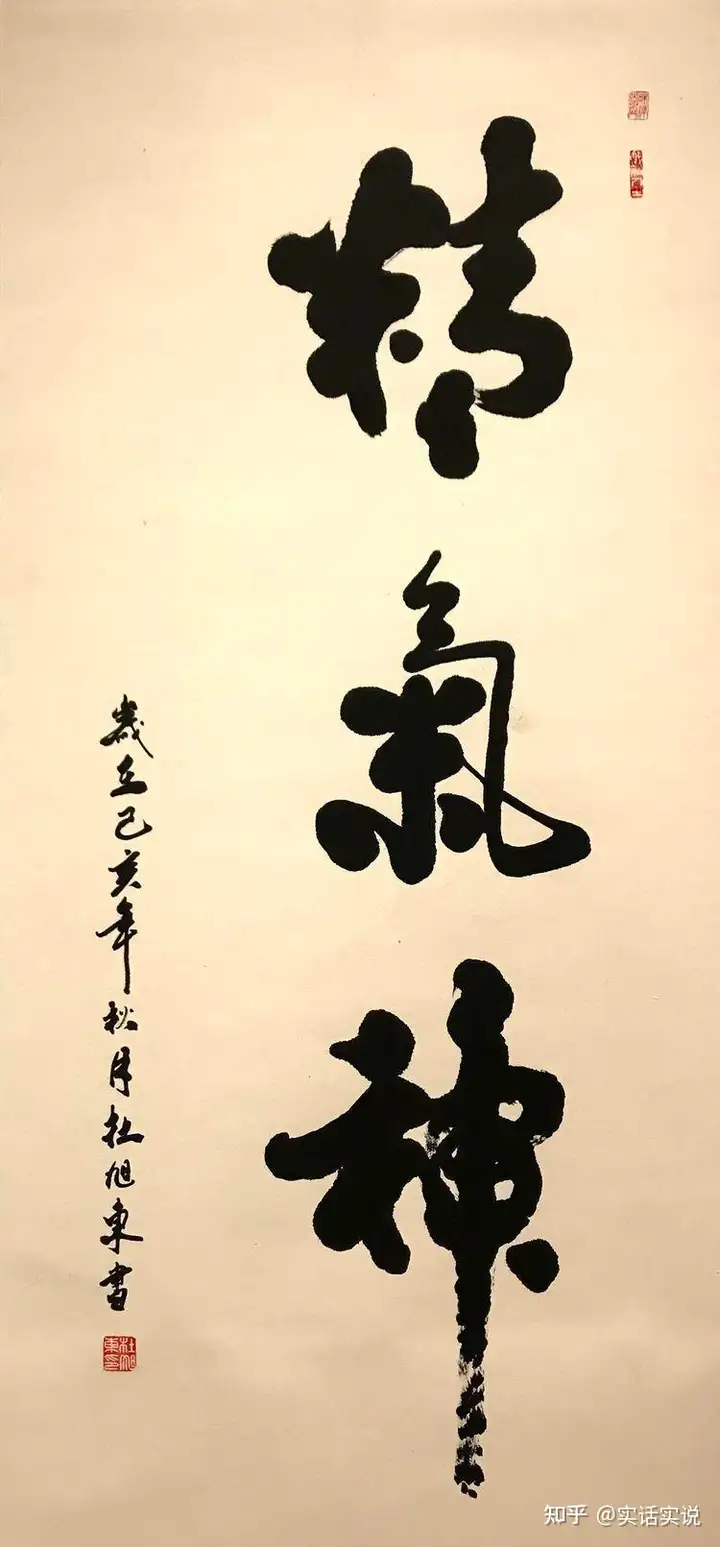 精氣神
歲在己亥年秋月杜旭東書
杜旭東印
知乎 @实话实说